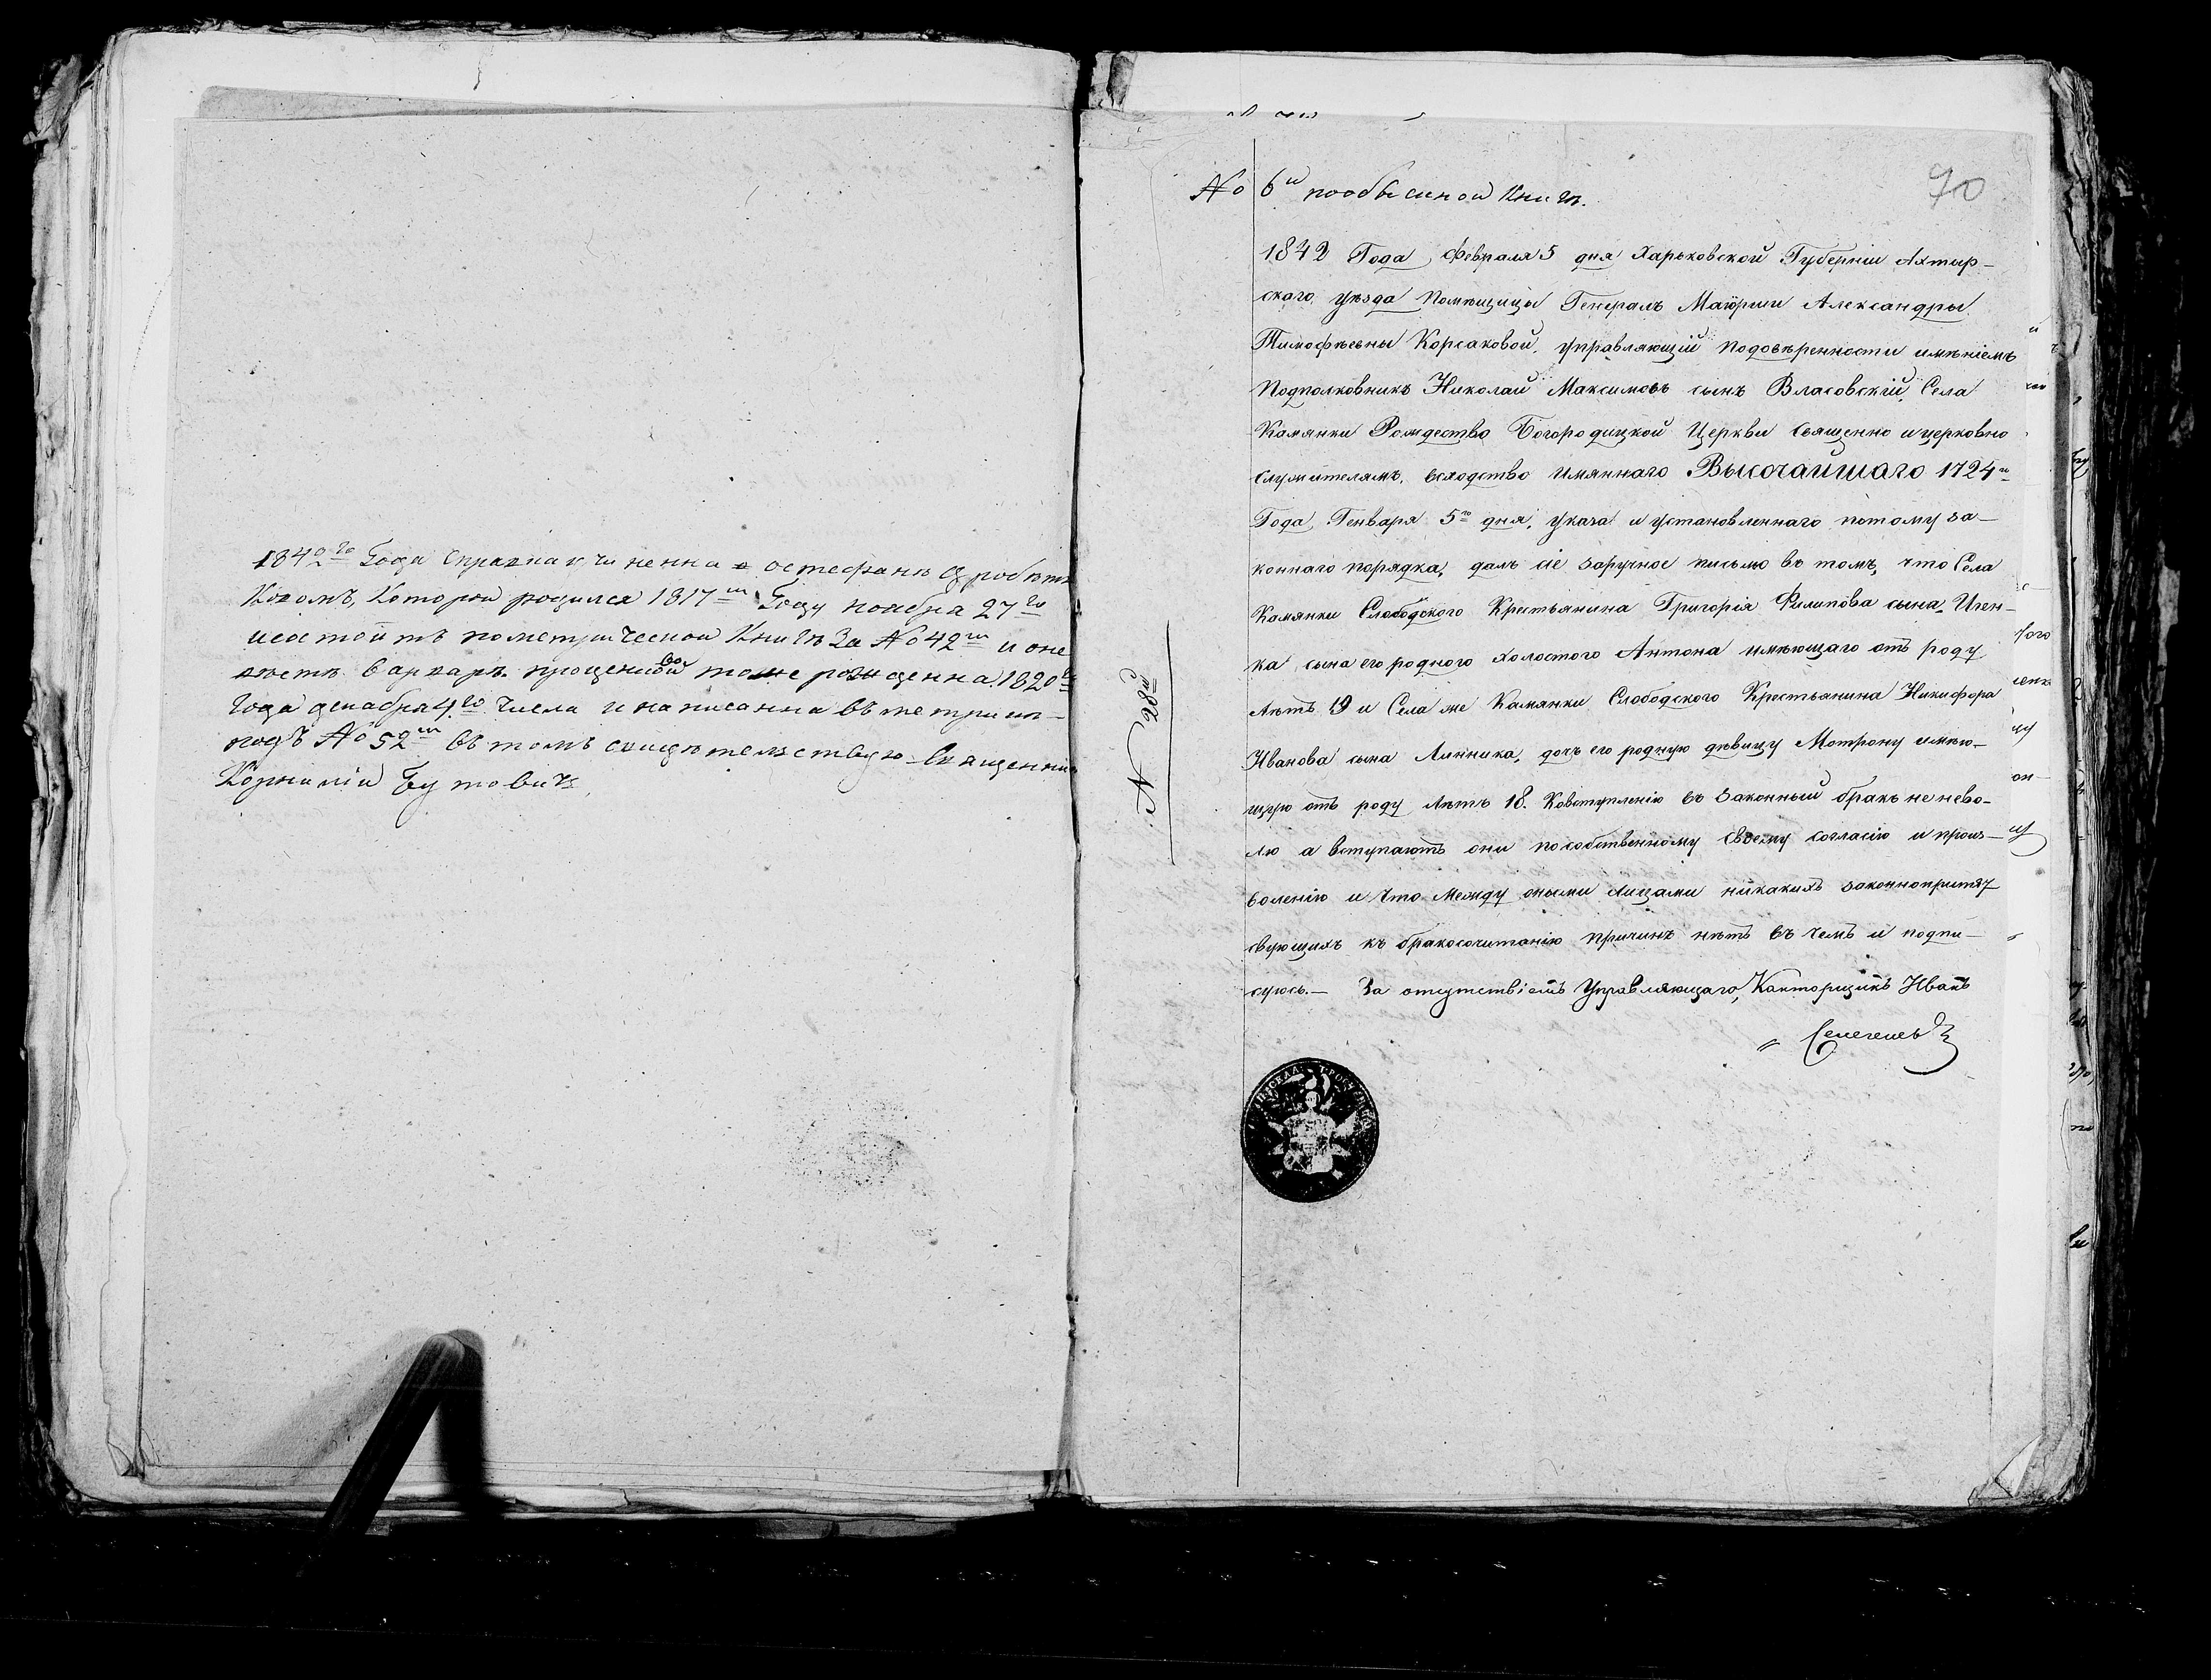 1842го Года справка учиненна остефанѣ Дробить
Которой родился 1817м Году ноября 27го
исостоитъ пометрической Книгѣ За №42м и оне
вѣстѣ варварѣ тоже рожденна 1820го
Года декабря 4го числа и написанна въ метрики
подъ №52м въ томъ свидѣтельствую Священник
Корнилiй Бутовичъ
90
№ 6й пообысной Книгѣ.
1842 Года Февраля 5 дня Харьковской Губернiи Ахтыр-
скаго уѣзда Помѣщицы Генералъ Маiорши Александры
Тимофѣевны Корсаковой, управляющiй подовѣренности имѣнiемъ
Подполковникъ Николай Максимовъ сынъ Власовскiй, Села
Камянки Рождество Богородицкой Церкви священно и церковно
служителямъ, вслодство имяннаго Высочайшаго 1724го
Года Генваря 5го дня, указа и установленнаго потому за-
коннаго порядка, далъ сiе заручное письмо въ томъ, что Села
Камянки Слободского Крестьянина Григорiя Филипова сына,
ка сына его родного холостого Антона имѣющаго отъ роду
лѣтъ 19 и Села же Камянки Слободского Крестьянина Никифора
Иванова сына Линника, дочь его родную дѣвицу Мотрону имѣю-
щую отъ роду лѣтъ 18. Ковступленiю въ законный бракъ не нево-
лю а вступаютъ они пособственному своему согласiю и произ-
воленiю и что между оными лицами никакихъ
свующихъ къ бракосочитанiю причинъ нѣтъ въ чемъ и подпи-
суюсь.— За отсутствiемъ Управляющаго, Канторщикъ Иванъ